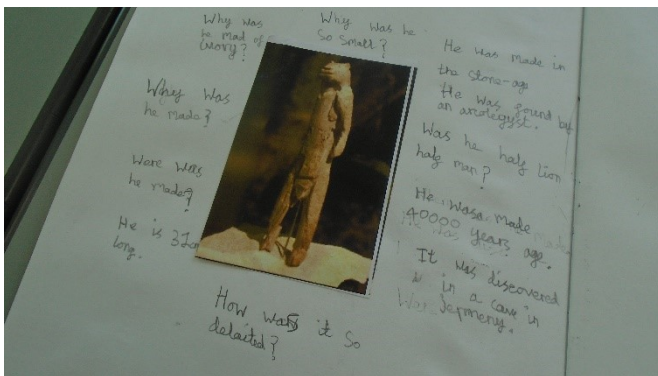 Why was
he mad of
ivory?
Why was he
So Small?
He was made in
the stone-age
He was found by
an
Why was
he made?
Was he half lion
half man?
Were was
he made?
He was made
40000 years age.
He is
long.
It was discovered
in a cave in
Jermeny.
How was it so
delaited?